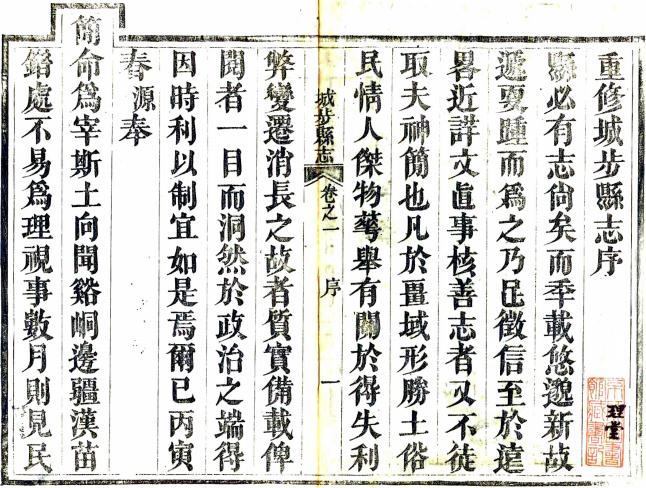 重修城步縣志序
縣必有志尙矣而季載悠邈新故
遞更踵而爲之乃足徵信至於遠
畧近詳文直事核善志者又不徒
取夫神簡也凡於畺域形勝土俗
民情人傑物華舉有關於得失利
城步縣志 卷之一 序 一
弊變遷消長之故者質實備載俾
閱者一目而洞然於政治之端得
因時利以制宜如是焉爾已丙寅
春源奉
簡命爲宰斯土向聞谿峒邊疆漢苗
錯處不易爲理視事數月則見民
理堂